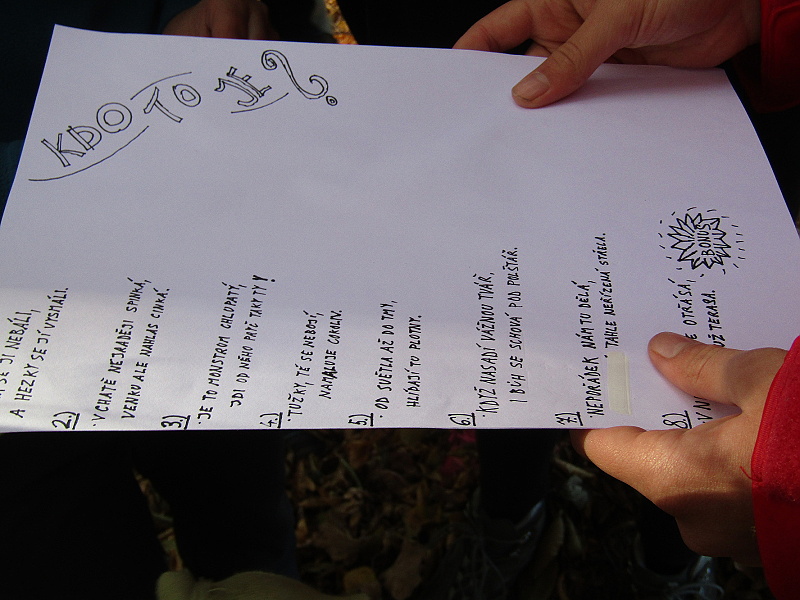 KDO TO JE?
SE JÍ NEBÁLI,
A HEZKY SE JÍ VYSMÁLI.
2.)
V CHATĚ NEJRADĚJI SPINKÁ,
VENKU ALE NAHLAS CINKÁ.
3.)
JE TO MONSTROM CHLUPATÝ,
JDI OD NĚHO PRYČ TAKY TY!
4.)
TUŽKY, TÉ SE NEBOJÍ,
NAMALUJE CO KOLIV.
5.)
OD SVĚTLA AŽ DO TMY,
HLÍDAJÍ TU PLOTNY.
6.)
KDYŽ NASADÍ VÁŽNOU TVÁŘ,
I BŮH SE SCHOVÁ POD POLŠTÁŘ.
7.)
NEPOŘÁDEK NÁM TU DĚLÁ,
TAHLE NEŘÍZENÁ STŘELA.
8.)
BONUS
OTŘÁSÁ,
UŽ TERASA.